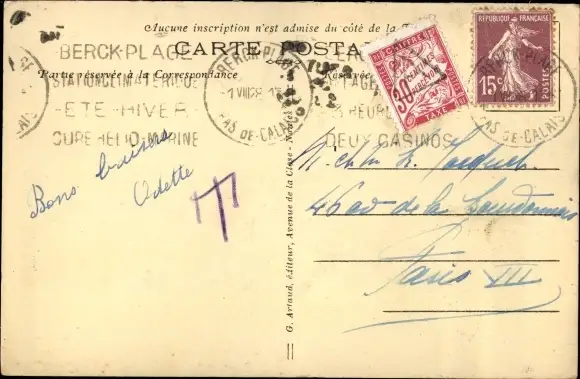 Aucune inscription n'est admise du côté de la
CARTE POSTA
Partie réservée à la Correspondance
BERCK-PLAGE
STATION CLIMATERIQUE
ETE-HIVER
CURE HELIO-MARINE
BERCK-PLAGE
PAS DE-CALAIS
DEUX CASINOS
CHIFFRE
30
TAXE
REPUBLIQUE FRANÇAISE
15c
POSTES
BERCK-PLAGE
PAS DE-CALAIS
Bons baisers
Odette
T
46 av de la Bourdonnais
Paris VII
G. Artaud, éditeur, Avenue de la Close - Nantes